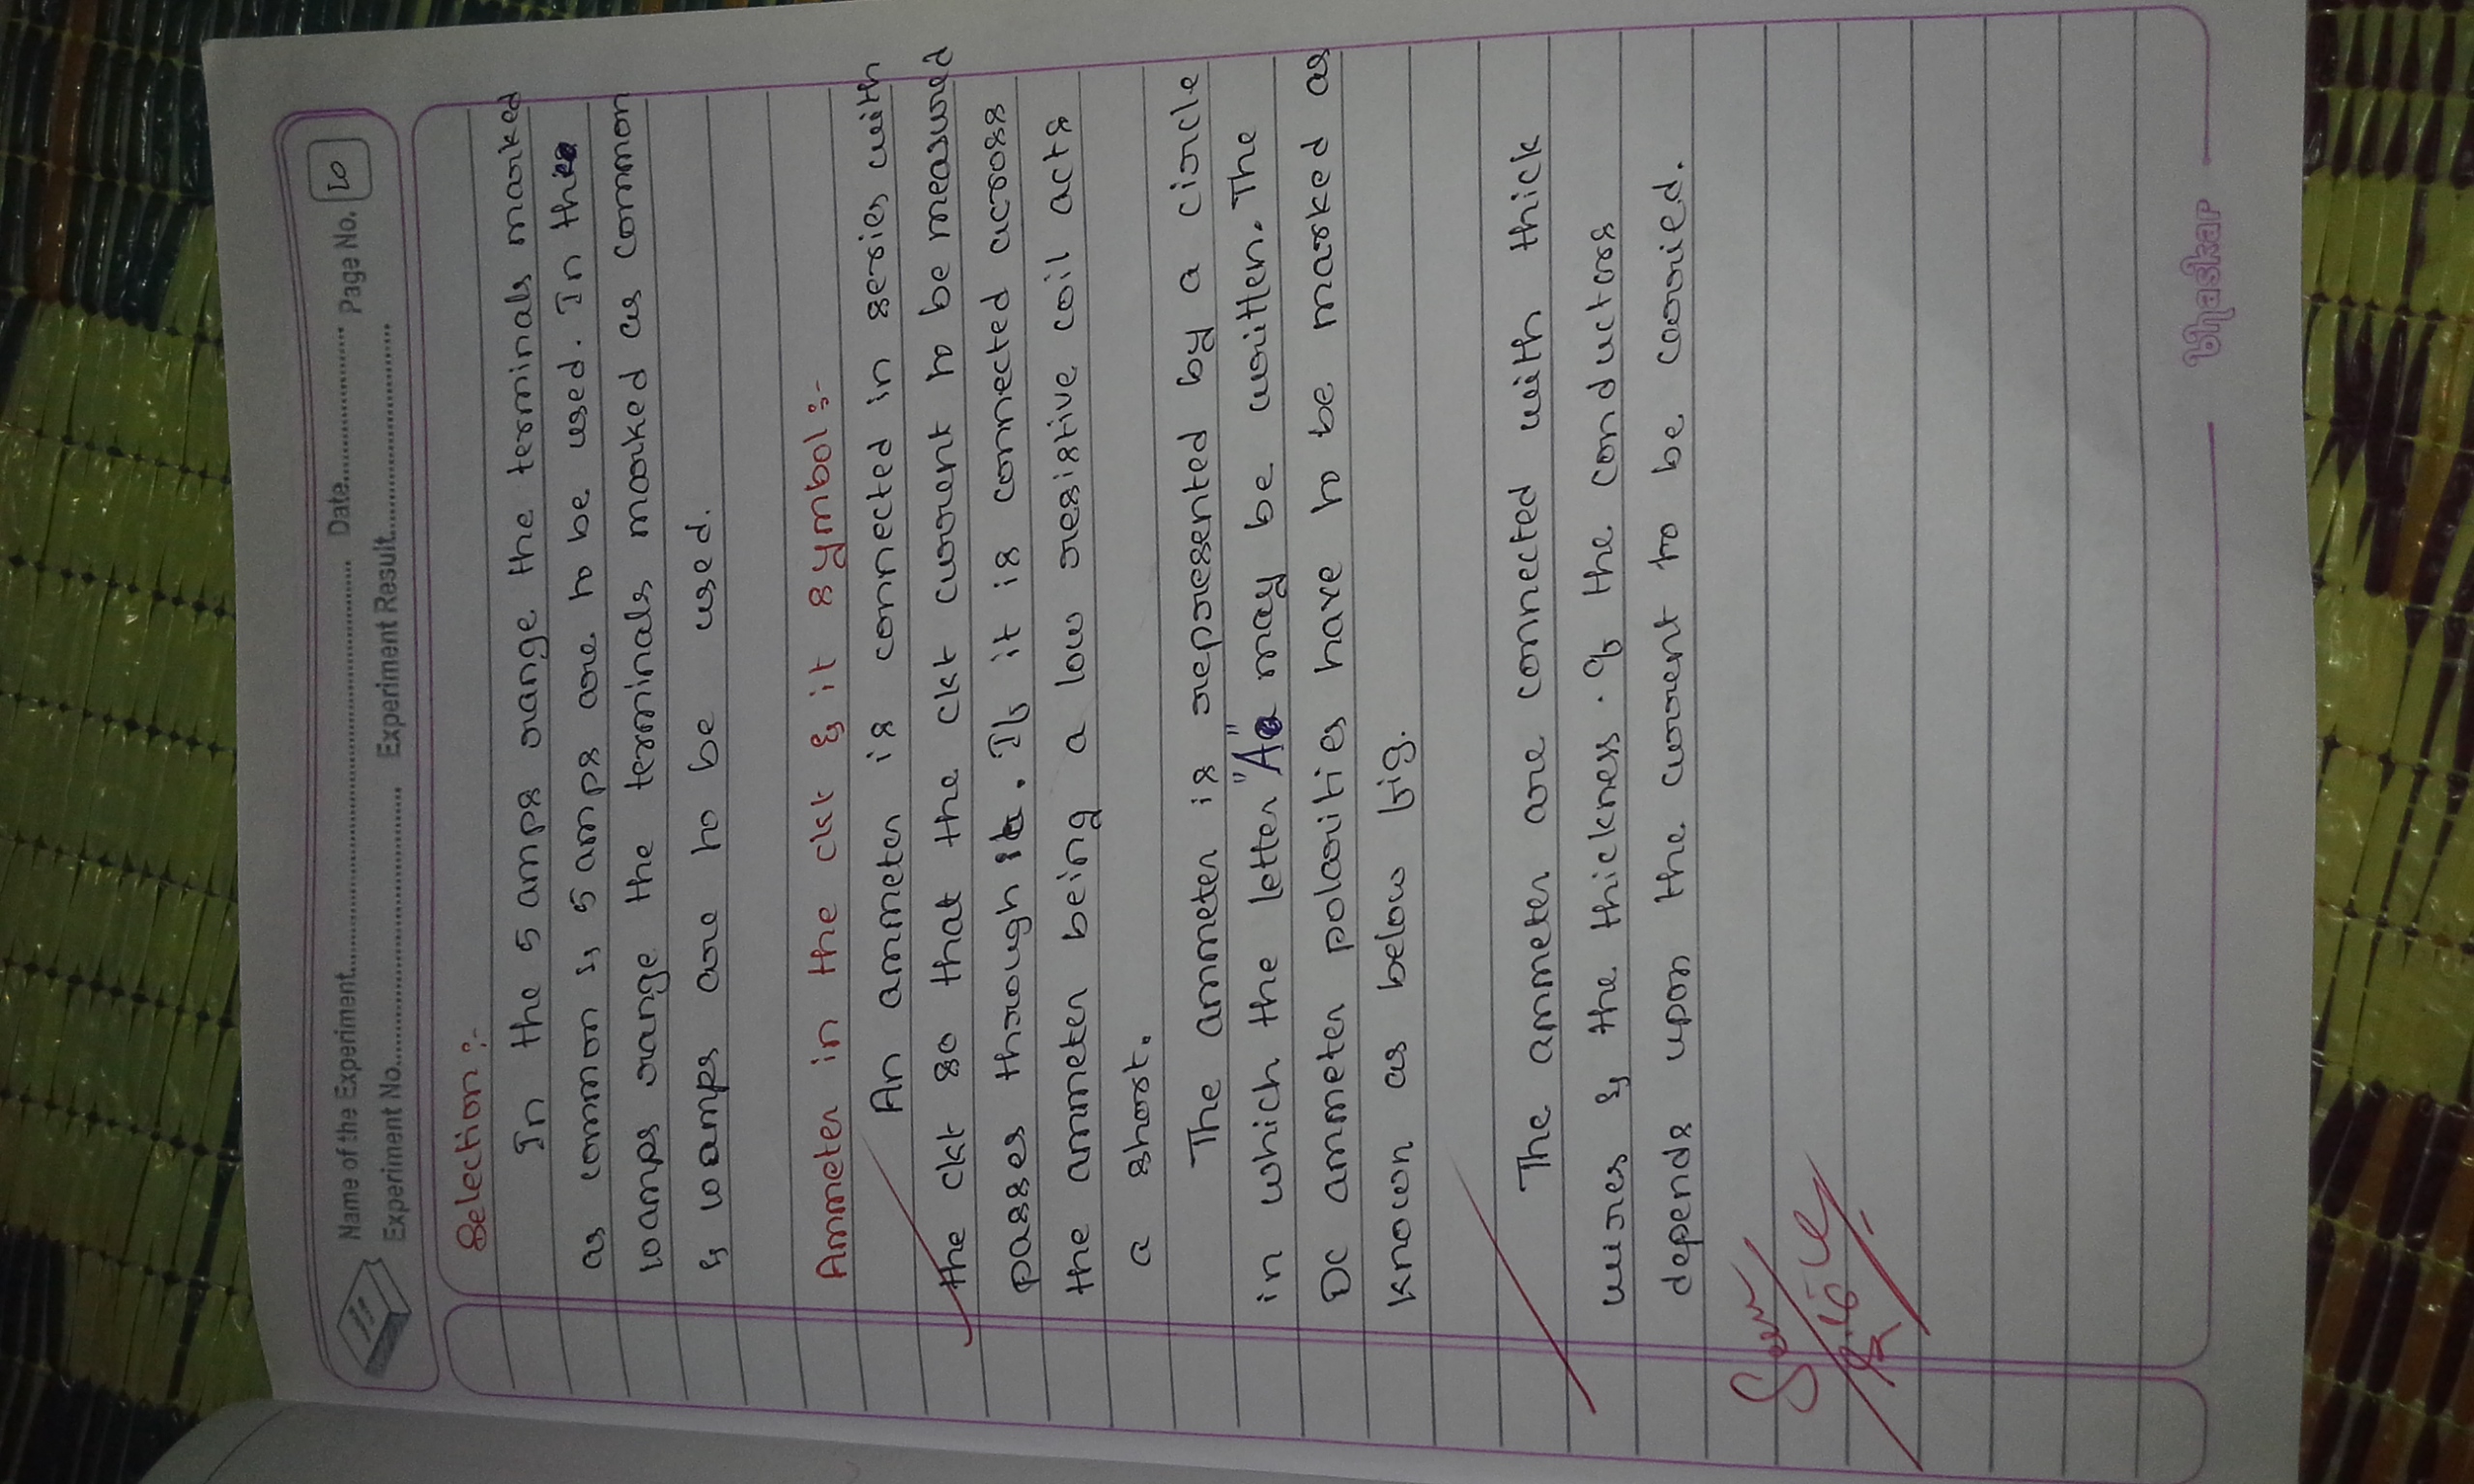 Name of the Experiment Date Page No. 10
Experiment No. Experiment Result
Selection :-
In the 5 amps range the terminals marked
as common & 5 amps are to be used. In the
10 amps range the terminals marked as common
& 10 amps are to be used.
Ammeter in the ckt & it symbol :-
An ammeter is connected in series with
the ckt so that the ckt current to be measured
passes through it. If it is connected across
the ammeter being a low resistive coil acts
a short.
The ammeter is represented by a circle
in which the letter "A" may be written. The
DC ammeter polarities have to be marked as
known as below fig.
The ammeter are connected with thick
wires & the thickness. of the conductors
depends upon the current to be carried.
Seen
bhaskar